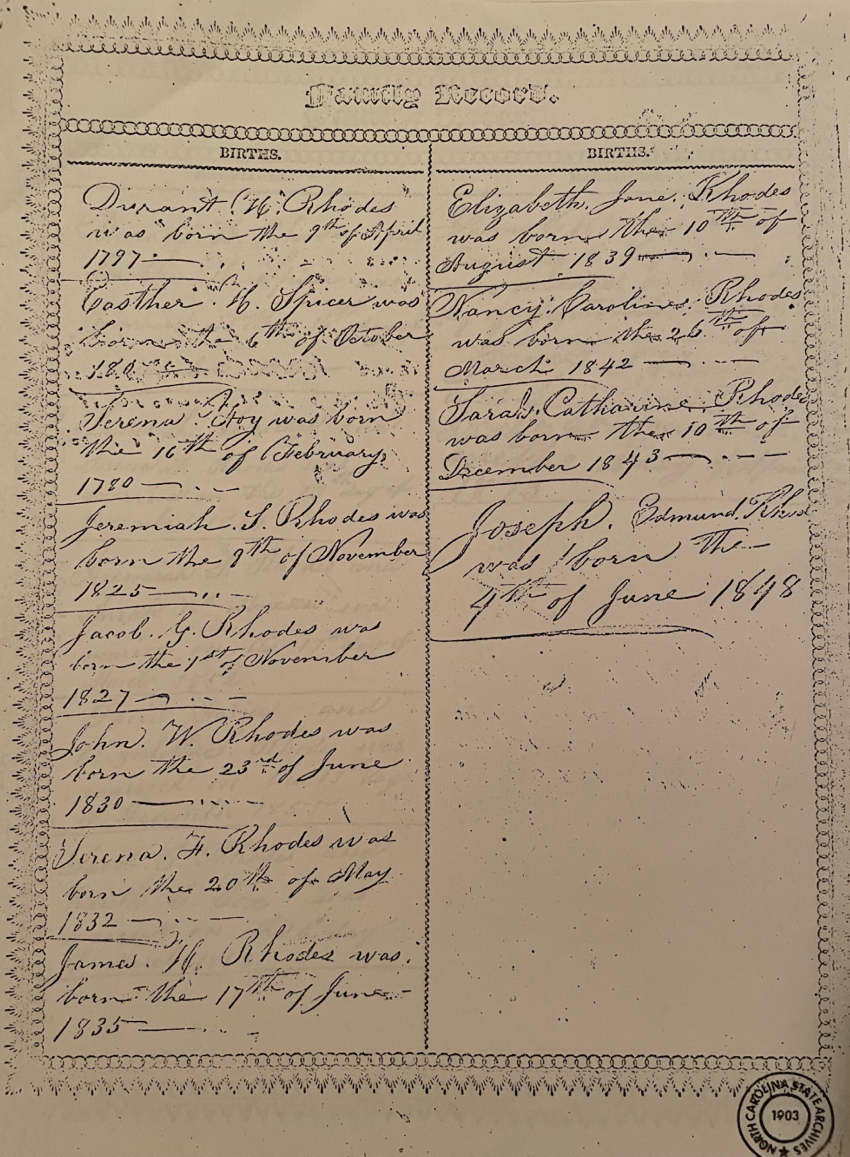 Family Record.
BIRTHS.
Durant H. Rhodes
was born the 9th of April
1797
Easther H. Spicer was
born the 6th of October
180
Serena Foy was born
the 16th of February
1780
Jeremiah. S. Rhodes was
born the 9th of November
1825
Jacob. G. Rhodes was
born the 1st of November
1827
John. W. Rhodes was
born the 23rd of June
1830
Serena. F. Rhodes was
born the 20th of May
1832
James. H. Rhodes was.
born the 17th of June
1835
BIRTHS.
Elizabeth. Jane. Rhodes
was born the 10th of
August 1839
Nancy Caroline Rhodes
was born the 26th of
March 1842
Sarah. Catharine Rhodes
was born the 10th of
December 1843
Joseph. Edmund. Rhod
was born the
4th of June 1848
NORTH CAROLINA STATE ARCHIVES
1903